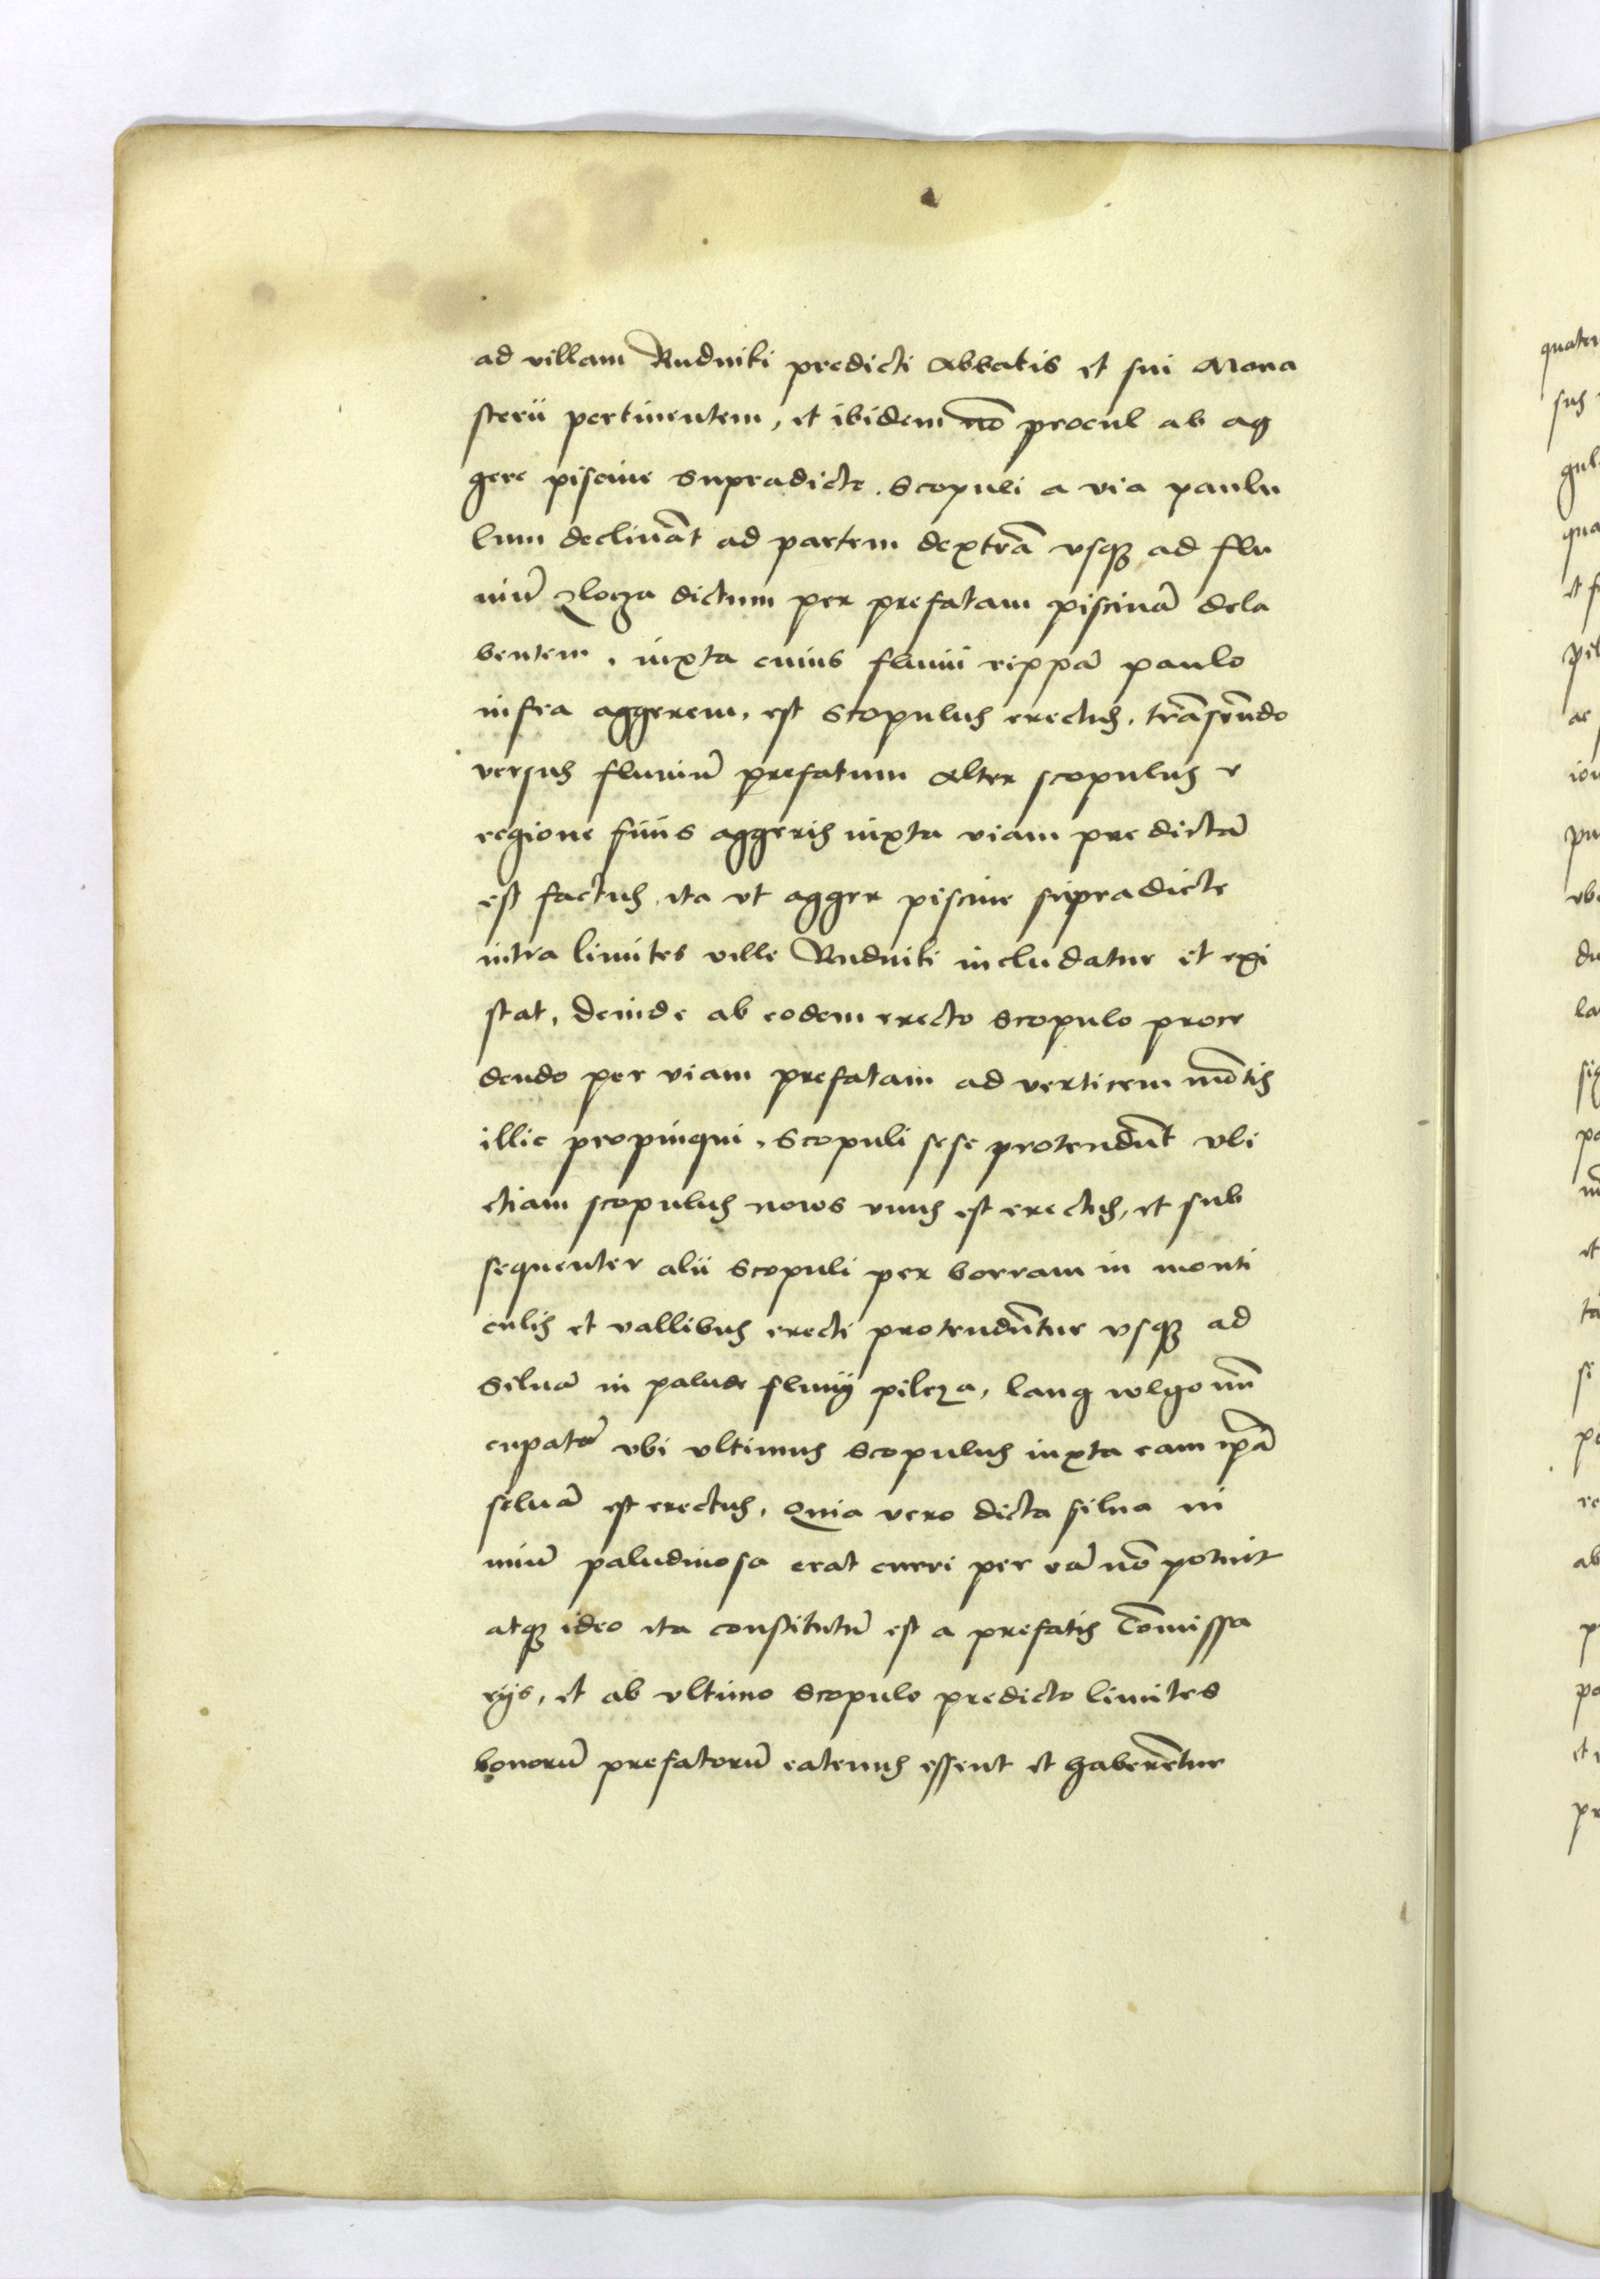 ad villam Rudniki predicti Abbatis et sui Mona
sterii pertinentem, et ibidem nō procul ab ag
gere piscine supradicte. Scopuli a via paulu
lum declināt ad partem dextrā vsqȝ ad flu
uiū zlocza dictum per prefatam piscinā dela
bentem, iuxta cuius fluuii rippā paulo
infra aggerem, est Scopulus erectus, trāseūdo
versus fluuiū prefatum Alter scopulus e
regione finis aggeris iuxta viam predictā
est factus ita vt agger piscine supradicte
intra limites ville Rudniki includatur et exi
stat, Deinde ab eodem erecto Scopulo proce
dendo per viam prefatam ad verticem mōtis
illic propinqui, Scopuli sese protendūt vbi
etiam scopulus nows vnus est erectus, et sub
sequenter alii Scopuli per borram in monti
culis et vallibus erecti protendūtur vsqȝ ad
Siluā in palude fluuij pilcza, lang wlgo nūn
cupatā vbi vltimus Scopulus iuxta eam ipā
siluā est erectus, Quia vero dicta silua ni
miū paludinosa erat curri per eā nō potuit
atqȝ ideo ita constitutū est a prefatis Cōmissa
rijs, et ab vltimo Scopulo predicto limites
bonorū prefatorū eatenus essent et haberētur